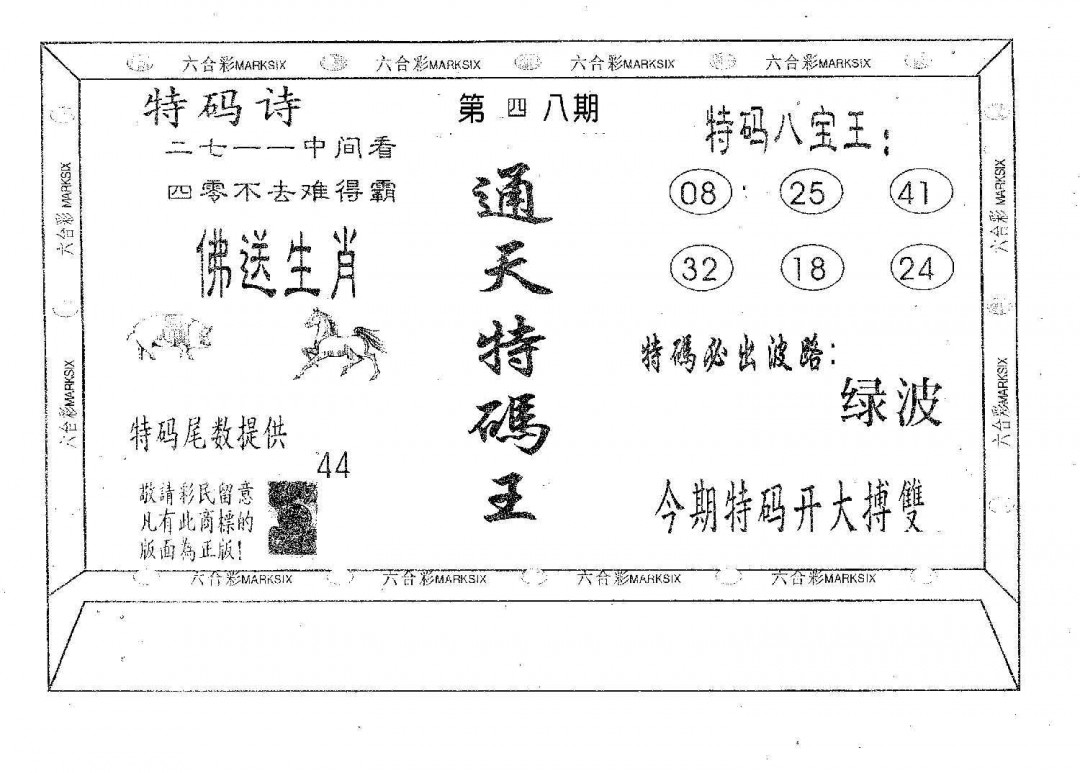 六合彩MARKSIX 六合彩MARKSIX 六合彩MARKSIX 六合彩MARKSIX
六合彩 MARKSIX
六合彩MARKSIX
特码诗
二七一一中间看
四零不去难得霸
佛送生肖
特码尾数提供
44
敬請彩民留意
凡有此商標的
版面為正版!
第四八期
通
天
特
碼
王
特码八宝王:
08 25 41
32 18 24
特碼必出波路:
绿波
今期特码开大搏雙
六合彩 MARKSIX
六合彩MARKSIX
六合彩MARKSIX 六合彩MARKSIX 六合彩MARKSIX 六合彩MARKSIX